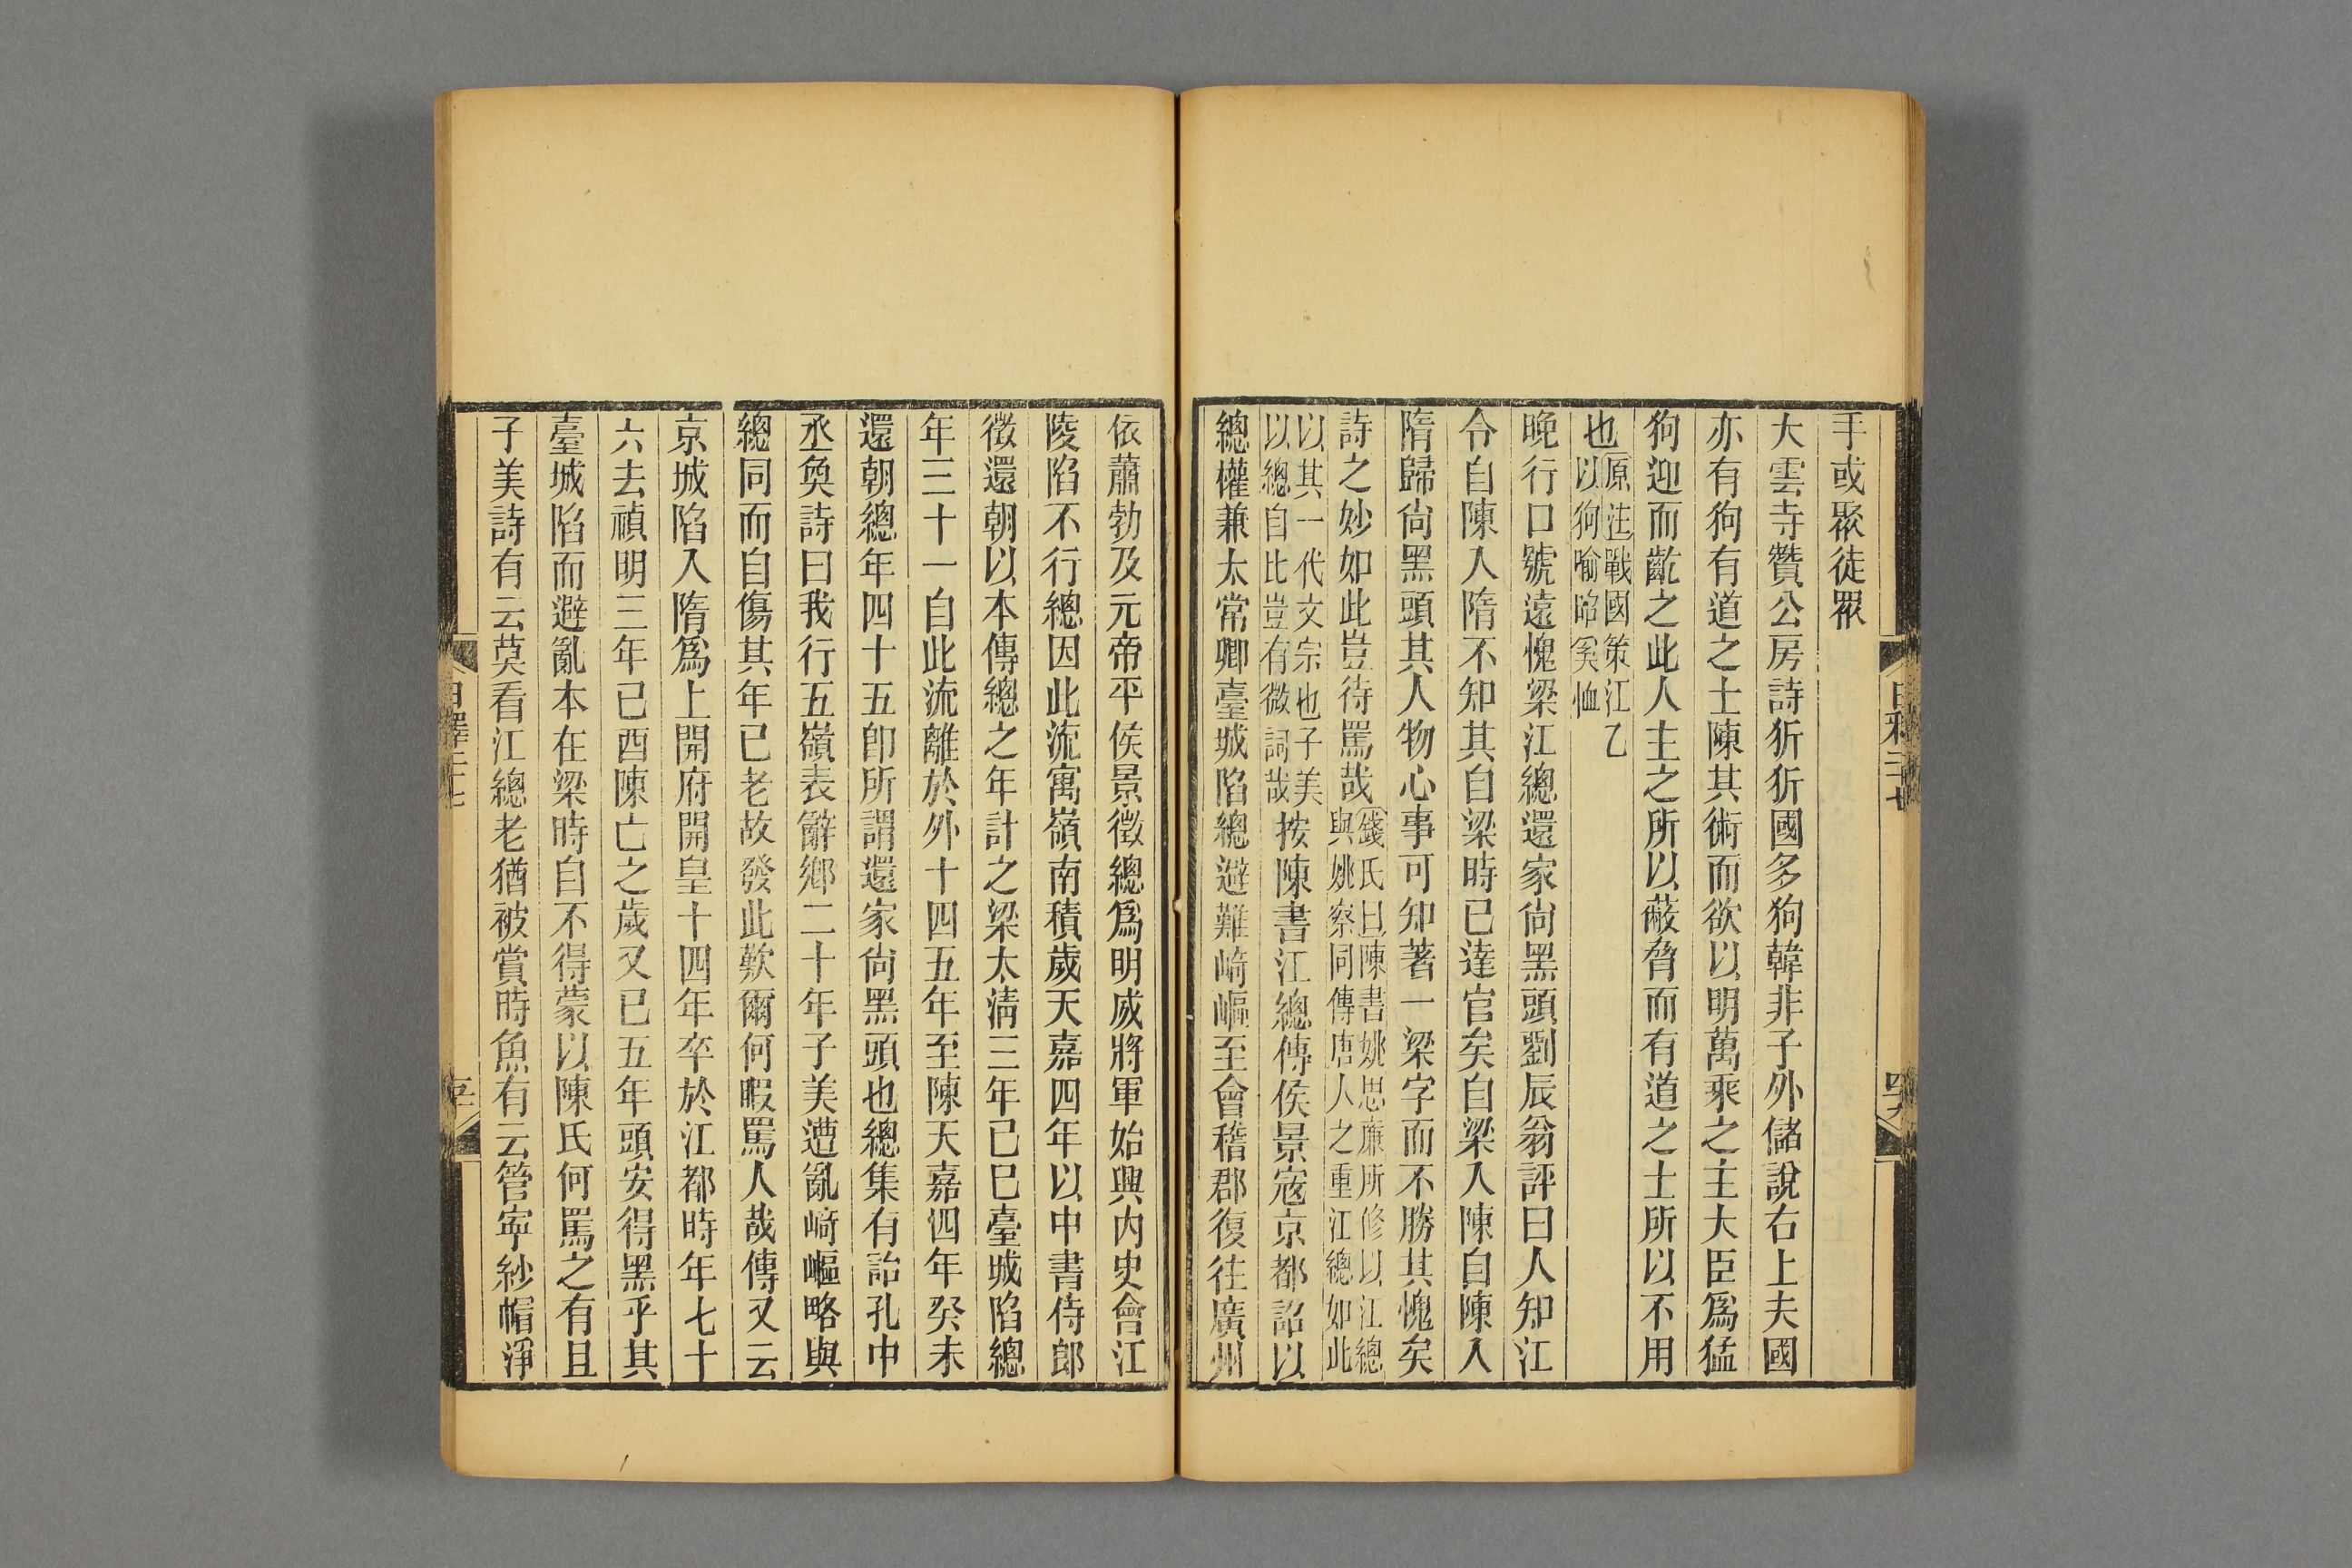 手或聚徒眾
大雲寺贊公房詩狾狾國多狗韓非子外儲說右上夫國
亦有狗有道之士陳其術而欲以明萬乘之主大臣爲猛
狗迎而齕之此人主之所以蔽脅而有道之士所以不用
也原注戰國策江乙以狗喻昭奚恤
晚行口號遠愧梁江總還家尙黑頭劉辰翁評曰人知江
令自陳入隋不知其自梁時已達官矣自梁入陳自陳入
隋歸尙黑頭其人物心事可知著一梁字而不勝其愧矣
詩之妙如此豈待罵哉錢氏曰陳書姚思廉所修以江總與姚察同傳唐人之重江總如此
以其一代文宗也子美以總自比豈有微詞哉按陳書江總傳侯景寇京都詔以
總權兼太常卿臺城陷總避難崎嶇至會稽郡復往廣州
依蕭勃及元帝平侯景徵總爲明威將軍始興內史會江
陵陷不行總因此流寓嶺南積歲天嘉四年以中書侍郎
徵還朝以本傳總之年計之梁太淸三年己巳臺城陷總
年三十一自此流離於外十四五年至陳天嘉四年癸未
還朝總年四十五卽所謂還家尙黑頭也總集有詒孔中
丞奐詩曰我行五嶺表辭鄉二十年子美遭亂崎嶇略與
總同而自傷其年已老故發此歎爾何暇罵人哉傳又云
京城陷入隋爲上開府開皇十四年卒於江都時年七十
六去禎明三年己酉陳亡之歲又已五年頭安得黑乎其
臺城陷而避亂本在梁時自不得蒙以陳氏何罵之有且
子美詩有云莫看江總老猶被賞時魚有云管寧紗帽淨